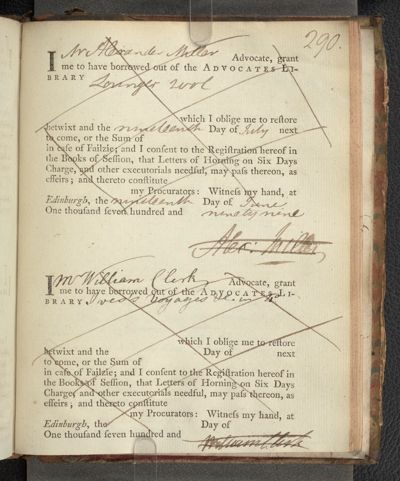 290.
I Mr Alexander Miller Advocate, grant
me to have borrowed out of the ADVOCATES LI-
BRARY Lounger
which I oblige me to restore
betwixt and the nineteenth Day of July next
to come, or the Sum of
in case of Failzie; and I consent to the Registration hereof in
the Books of Session, that Letters of Horning on Six Days
Charge, and other executorials needful, may pass thereon, as
effeirs; and thereto constitute
my Procurators: Witness my hand, at
Edinburgh, the nineteenth Day of June
One thousand seven hundred and ninety nine
Alex: Miller
I Mr William Clerk Advocate, grant
me to have borrowed out of the ADVOCATES LI-
BRARY voyages
which I oblige me to restore
betwixt and the Day of next
to come, or the Sum of
in case of Failzie; and I consent to the Registration hereof in
the Books of Session, that Letters of Horning on Six Days
Charge, and other executorials needful, may pass thereon, as
effeirs; and thereto constitute
my Procurators: Witness my hand, at
Edinburgh, the Day of
One thousand seven hundred and
William Clerk